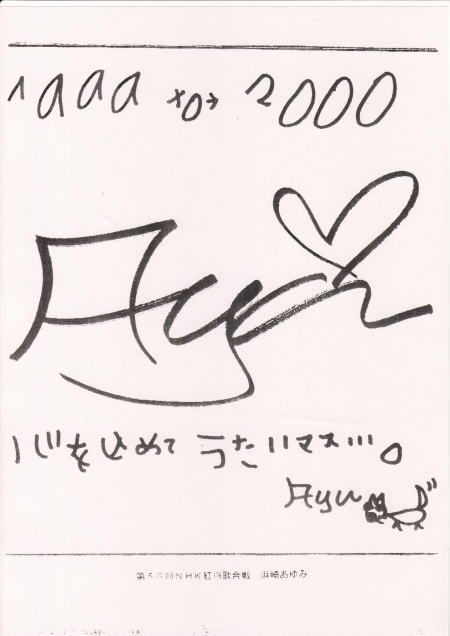 1999 to 2000
Ayu
心を込めて うたいマス…。
Ayu
第50回NHK紅白歌合戦 浜崎あゆみ